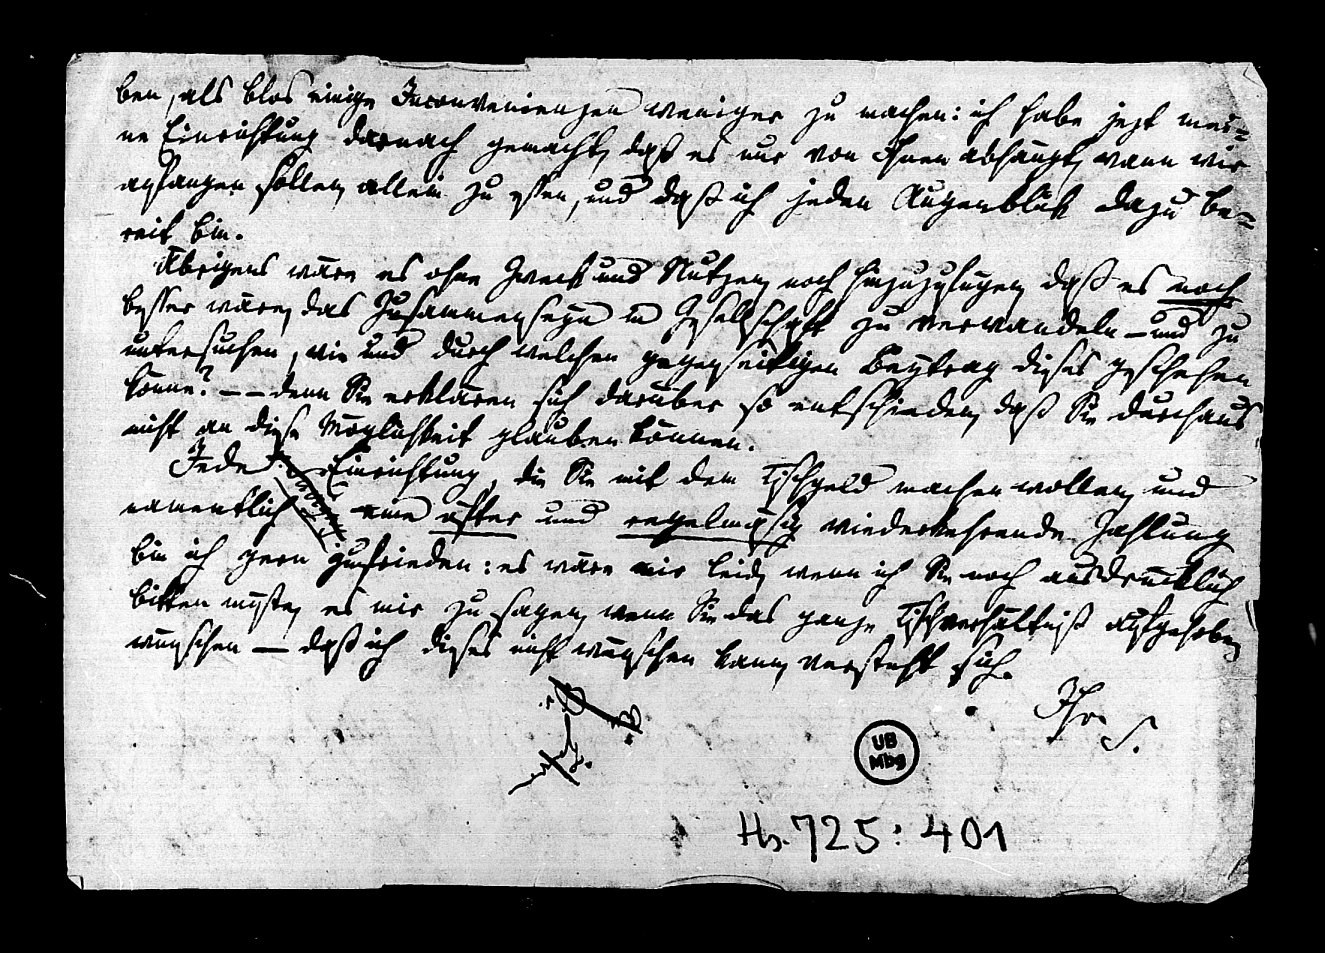 ben, als blos einige Inconvenienzen weniger zu machen: ich habe jezt mei=
ne Einrichtung darnach gemacht, daß es nur von Ihnen abhängt, wann wir
anfangen sollen, allein zu essen, und daß ich jeden Augenblik dazu be=
reit bin.
Übrigens wäre es ohne Zweck und Nutzen, noch hinzuzufügen, daß es noch
besser wäre, das Zusammenseyn in Gesellschaft zu verwandeln – und zu
untersuchen, wie und durch welchen gegenseitigen Beytrag dieses geschehen
könne? – – denn Sie erklären sich darüber so entschieden, daß Sie durchaus
nicht an diese Möglichkeit glauben können.
Jede Einrichtung, die Sie mit dem Tischgeld machen wollen, und
namentlich eine öfter und regelmäßig wiederkehrende Zahlung
bin ich gern zufrieden: es wäre mir leid, wenn ich Sie noch ausdrücklich
bitten müßte, es mir zu sagen, wenn Sie das ganze Tischverhältniß aufgehoben
wünschen – daß ich dieses nicht wünschen kann, versteht sich.
Ihr
S.
UB
Mbg
Hs. 725: 401